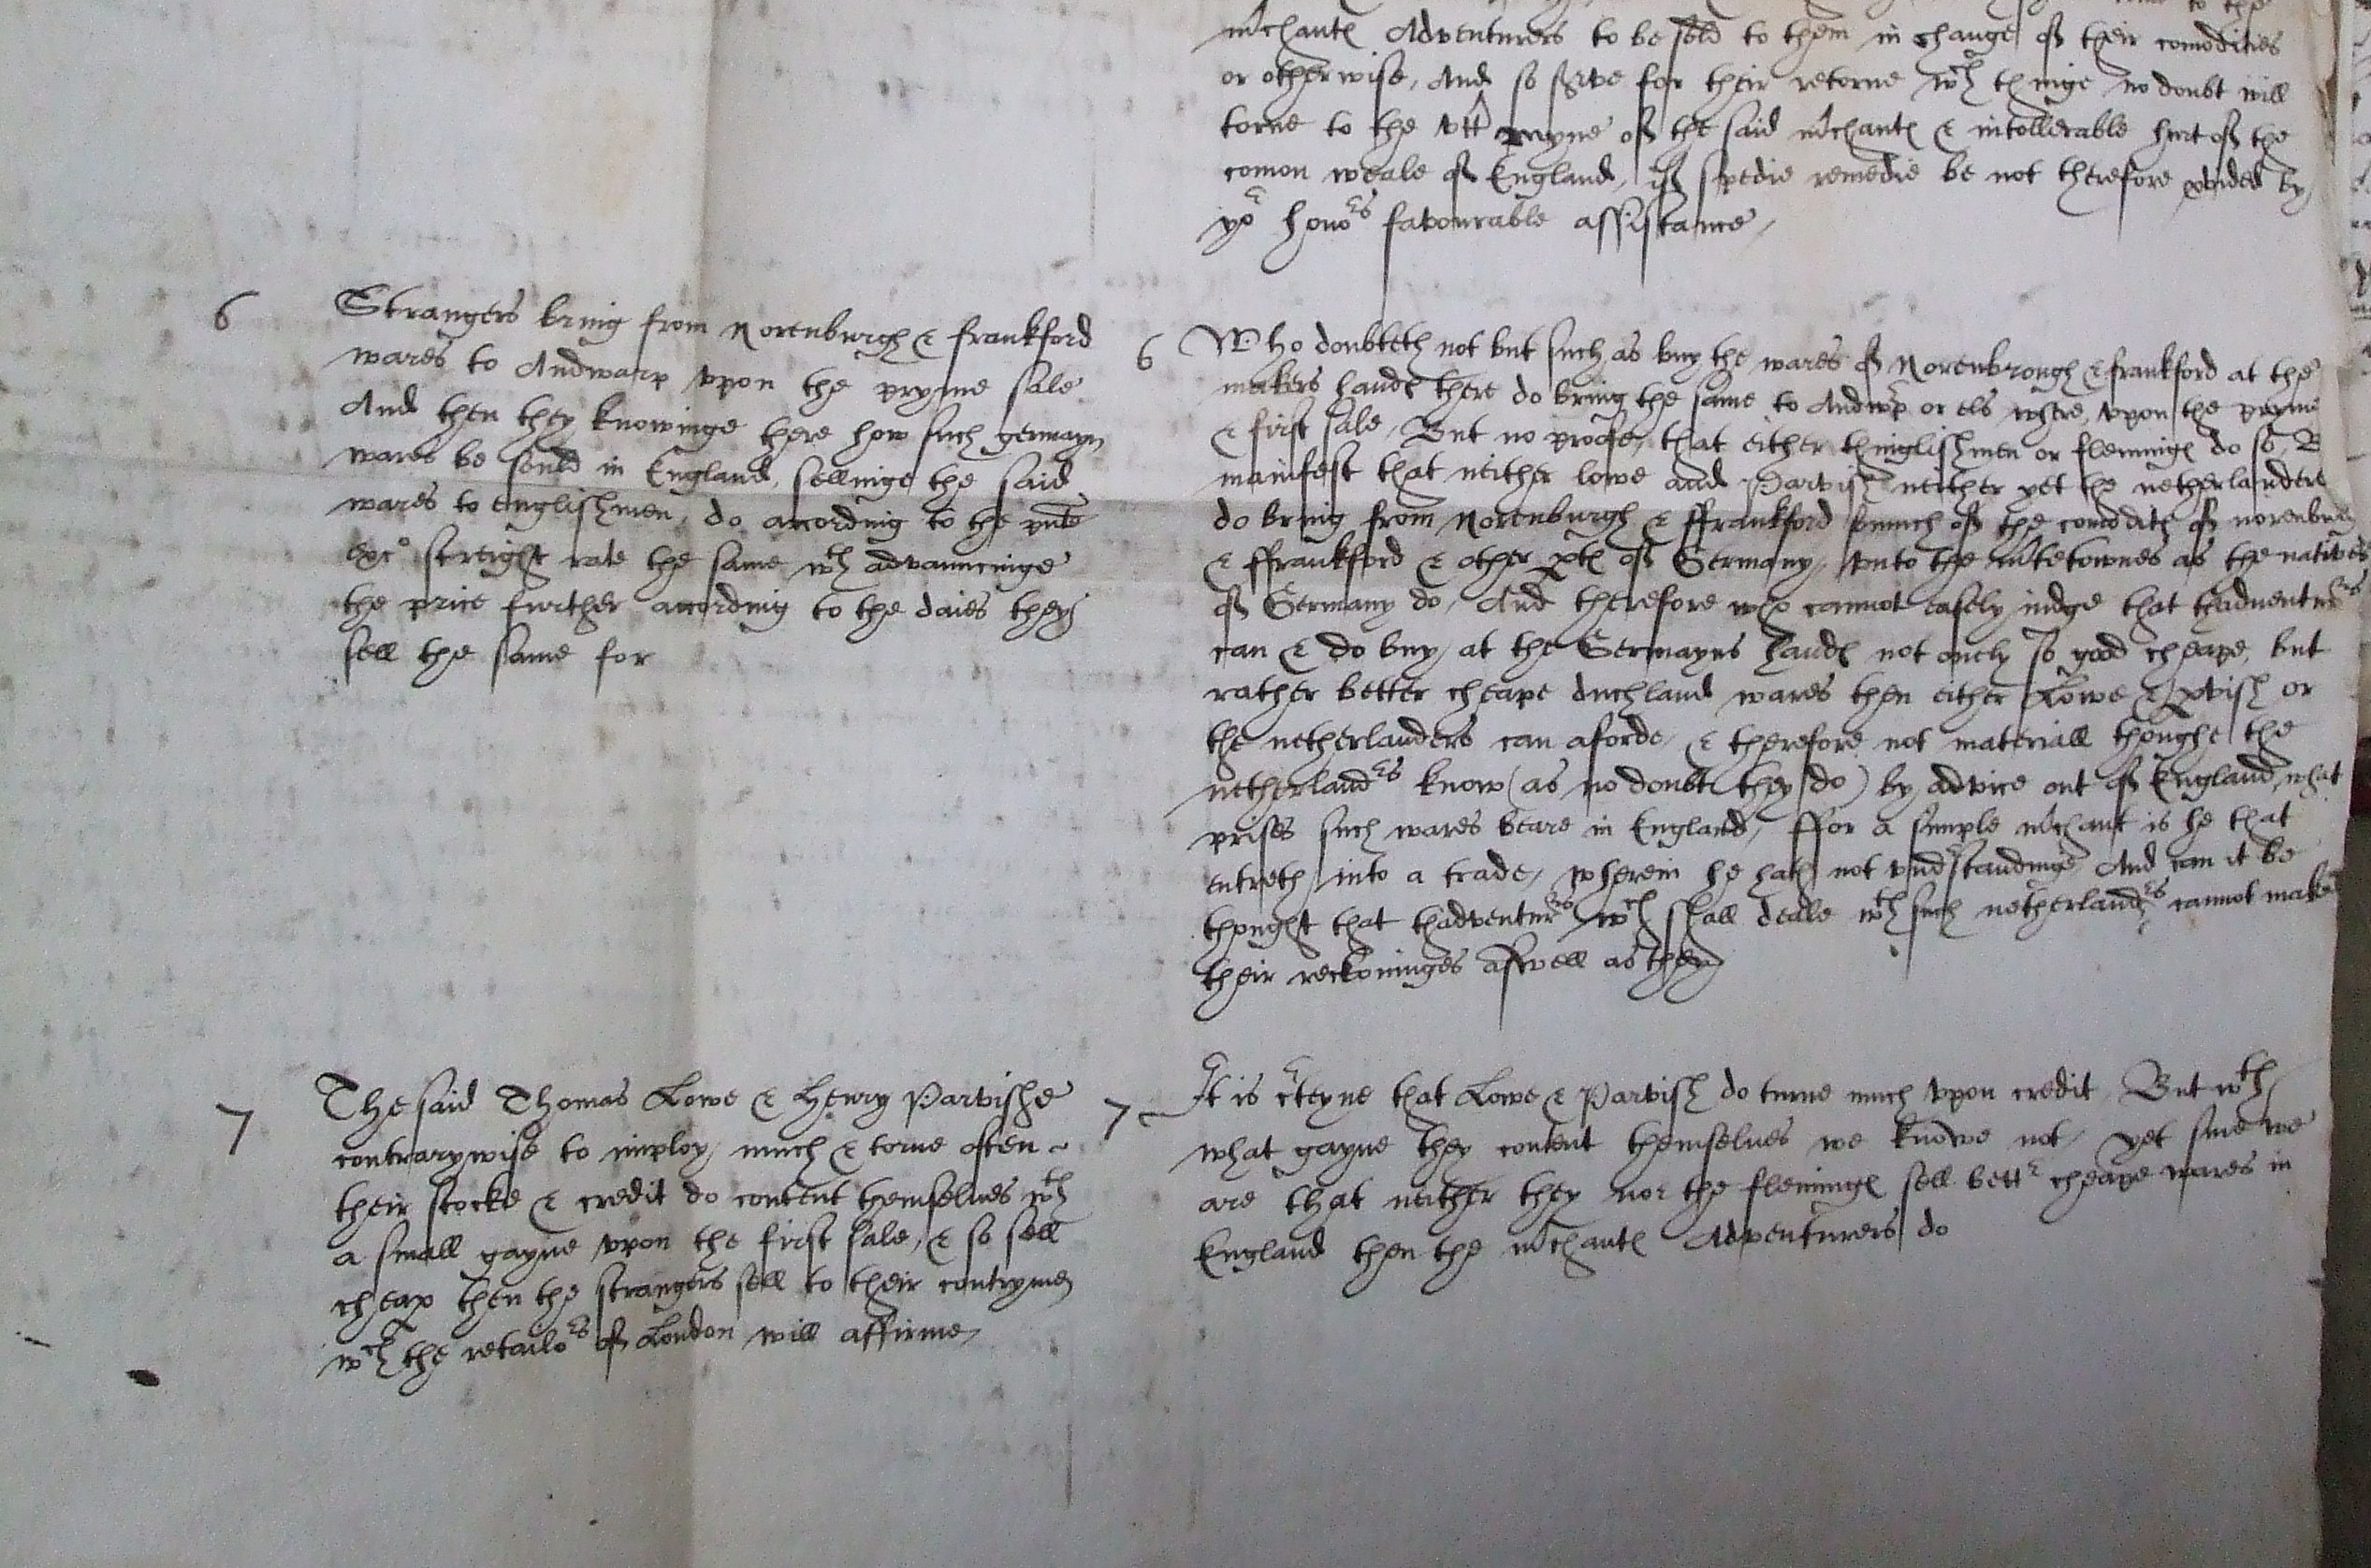 mchants Adventurers to be sold to them in change of their comodities
or otherwise, And so serve for their retorne wch thinge no doubt will
torne to the vtt ruyne of the said mchants & intollerable hurt of the
comon weale of England, if spedie remedie be not therefore pvided by
yor honors favourable assistance,
6 Strangers bring from Norenburgh & Frankford
wares to Andwarp vpon the pryme sale
And then they knowinge there how such germayn
wares be sould in England, sellinge the said
wares to englishmen, do according to the
streight rate the same wth advauncinge
the price further according to the daies they
sell the same for
6 Who doubteth not but such as buy the wares of Norenbrough & frankford at the
makers hands there do bring the same to Andwrp or els where, vpon the pryme
& first sale, But no profe, that either thinglishmen or flemings do so,
manifest that neither lowe and Parvish neither yet the netherlanders
do bring from Norenburgh & ffrankford so much of the comodits of
& ffrankford & other pts of Germany, vnto the mte townes as the natives
of Germany do, And therefore who cannot easely iudge that thadventurers
can & do buy, at the Germayns hands not onely so good cheape, but
rather better cheape duchland wares then either Lowe & pvish or
the netherlanders can aforde, & therefore not materiall thoughe the
netherlanders know (as no doubt they do) by advice out of England, what
prises such wares beare in England, ffor a simple mchant is he that
entreth into a trade, wherein he hath not vnderstandinge And can it be
thought that thadventurers wch shall deale wth such netherlanders cannot make
their reckoninges aswell as they
7 The said Thomas Lowe & Henry Parvishe
contrarywise to imploy, much & torne often
their stocke & credit do content themselues wth
a small gayne vpon the first sale, & so sell
cheap then the strangers sell to their contrymen
wch the retailors of London will affirme,
7 It is cteyne that Lowe & Parvish do turne much vpon credit But wth
what gayne they content themselues we knowe not, yet sure we
are that neither they nor the flemings sell better cheape wares in
England then the mchants Adventurers do